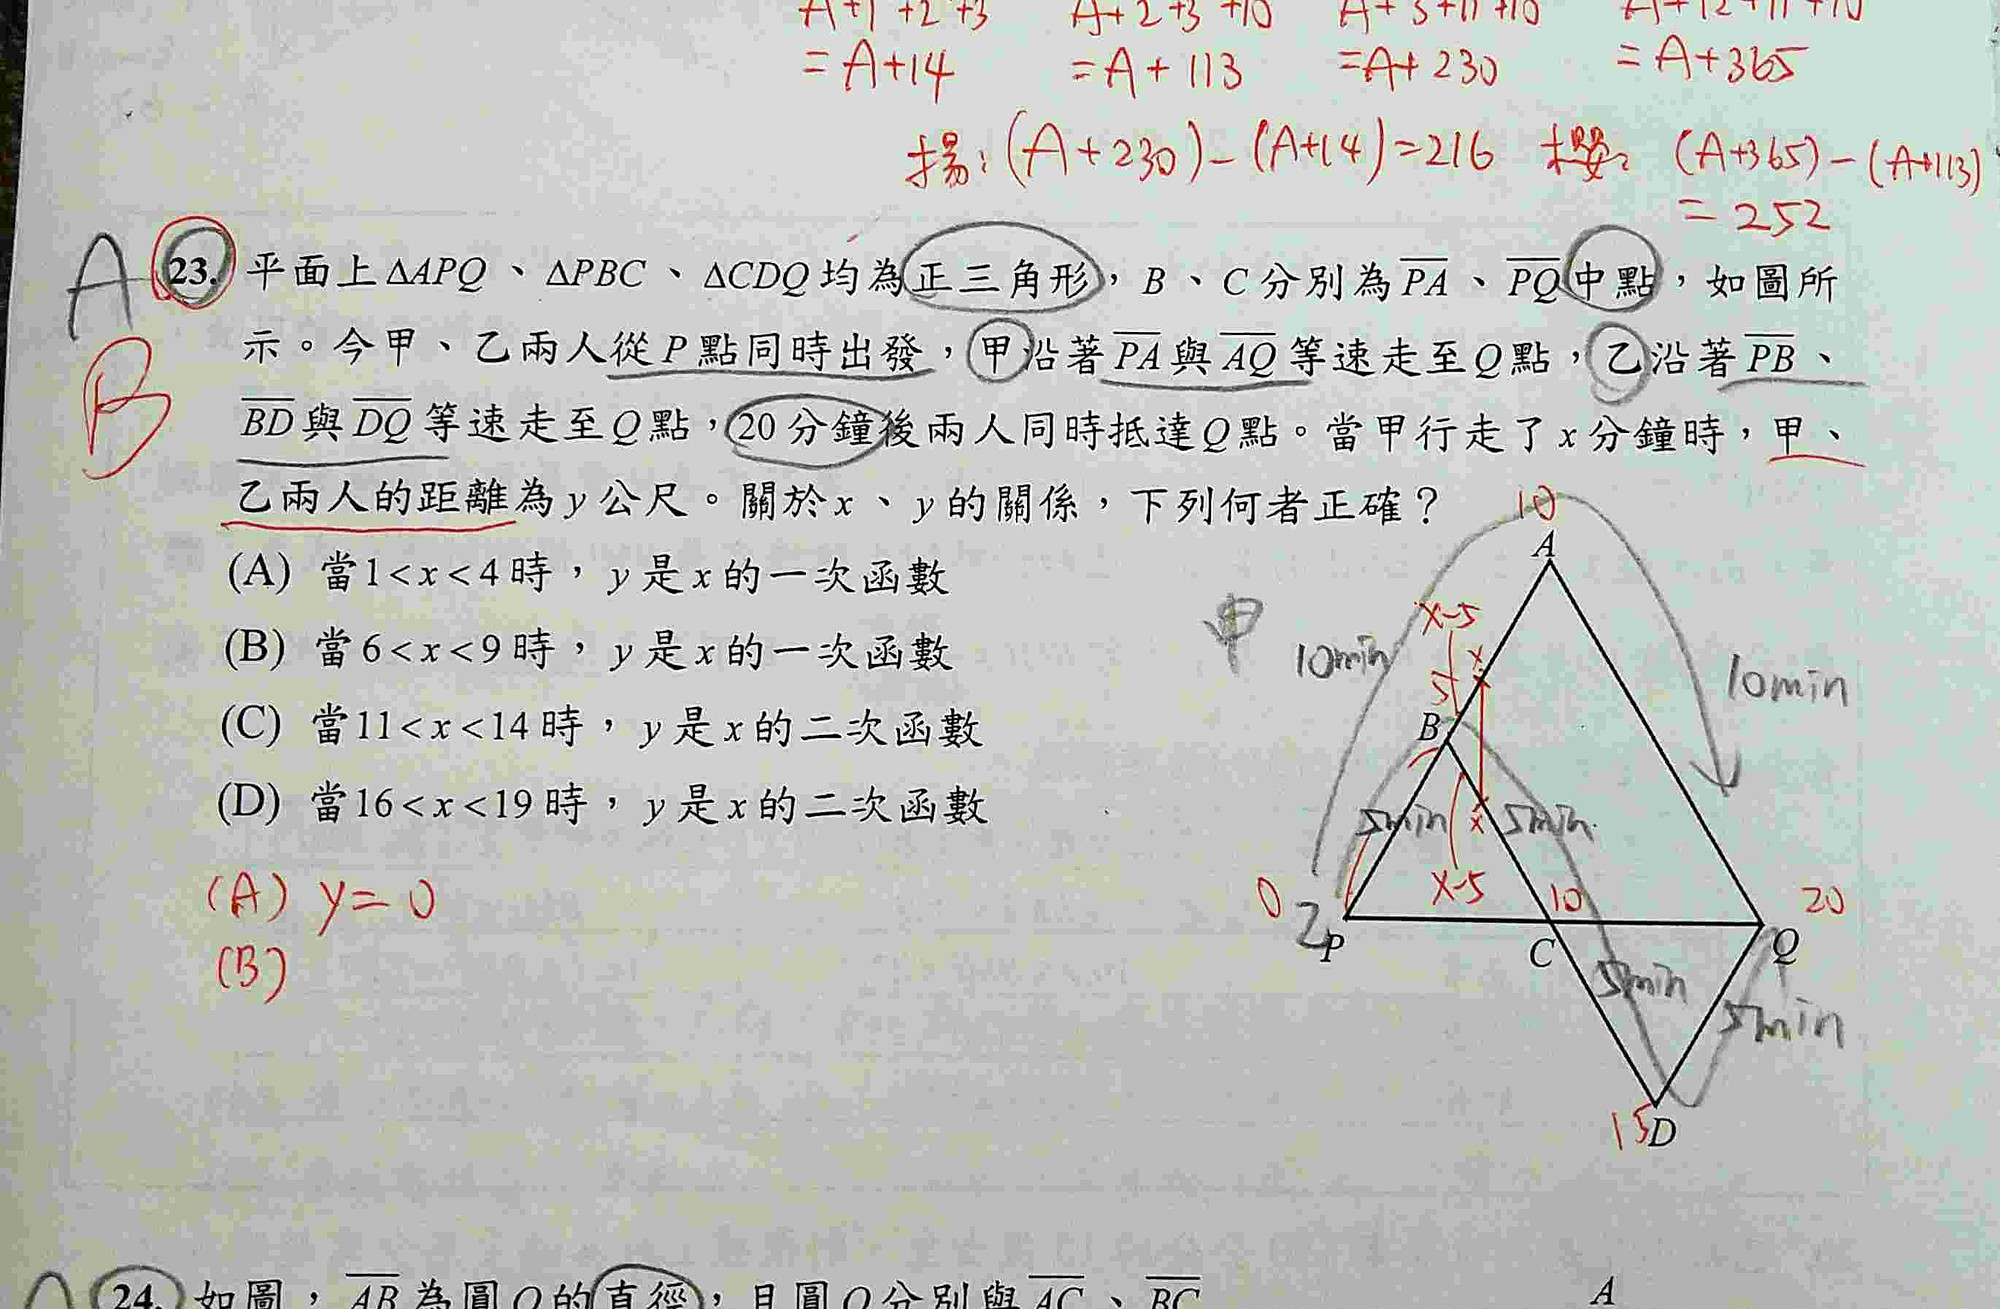 A+1+2+3 A+2+3+10 A+3+11+10 A+12+11+10
=A+14 =A+113 =A+230 =A+365
揚:(A+230)-(A+14)=216 櫻:(A+365)-(A+113)
=252
A 23. 平面上ΔAPQ、ΔPBC、ΔCDQ均為正三角形,B、C分別為PA、PQ中點,如圖所
示。今甲、乙兩人從P點同時出發,甲沿著PA與AQ等速走至Q點,乙沿著PB、
B
BD與DQ等速走至Q點,20分鐘後兩人同時抵達Q點。當甲行走了x分鐘時,甲、
乙兩人的距離為y公尺。關於x、y的關係,下列何者正確?
(A) 當1<x<4時,y是x的一次函數
(B) 當6<x<9時,y是x的一次函數
(C) 當11<x<14時,y是x的二次函數
(D) 當16<x<19時,y是x的二次函數
(A) y=0
(B)
10
A
甲
x-5
10min
x
5
10min
B
5min
x
5min
x-5
0
乙
P
10
C
20
Q
5min
5min
15
D
24. 如圖,AB為圓O的直徑,且圓O分別與AC、BC
A